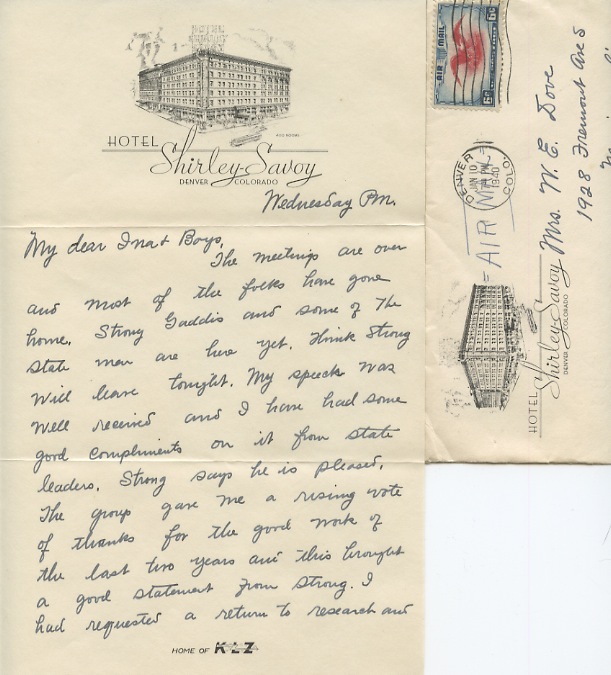 HOTEL
Shirley-Savoy
DENVER COLORADO
400 ROOMS
Wednesday P.M.
My dear Ina & Boys,
The meetings are over
and most of the folks have gone
home. Strong Gaddis and some of the
state men are here yet. Think Strong
will leave tonight. My speech was
well received and I have had some
good compliments on it from state
leaders. Strong says he is pleased.
The group gave me a rising vote
of thanks for the good work of
the last two years and this brought
a good statement from Strong. I
had requested a return to research and
HOME OF KLZ
AIR MAIL
6¢ 6¢
DENVER COLO.
JAN 10
PM
1940
=AIR MAIL=
Mrs. W. E. Dove
1928 Fremont Ave S
HOTEL
Shirley-Savoy
DENVER COLORADO